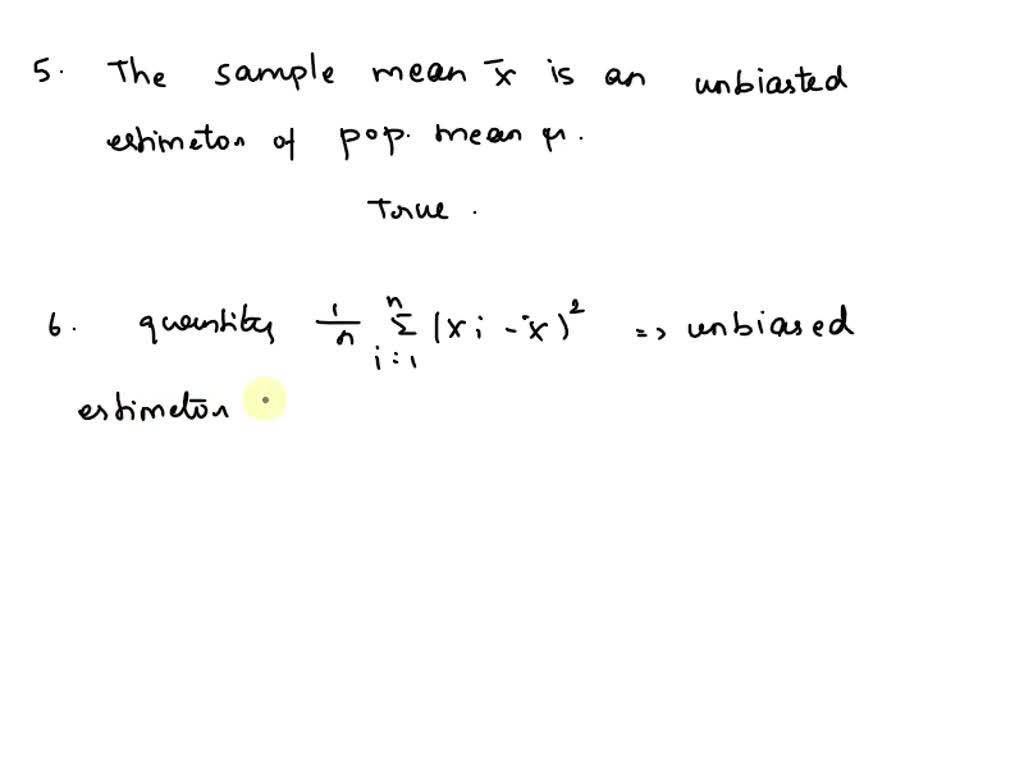 5. The sample mean x̄ is an unbiasted
estimeton of pop. mean μ.
True.
6. quantity 1/n Σ_{i=1}^{n} (xi - x̄)² => unbiased
estimeton